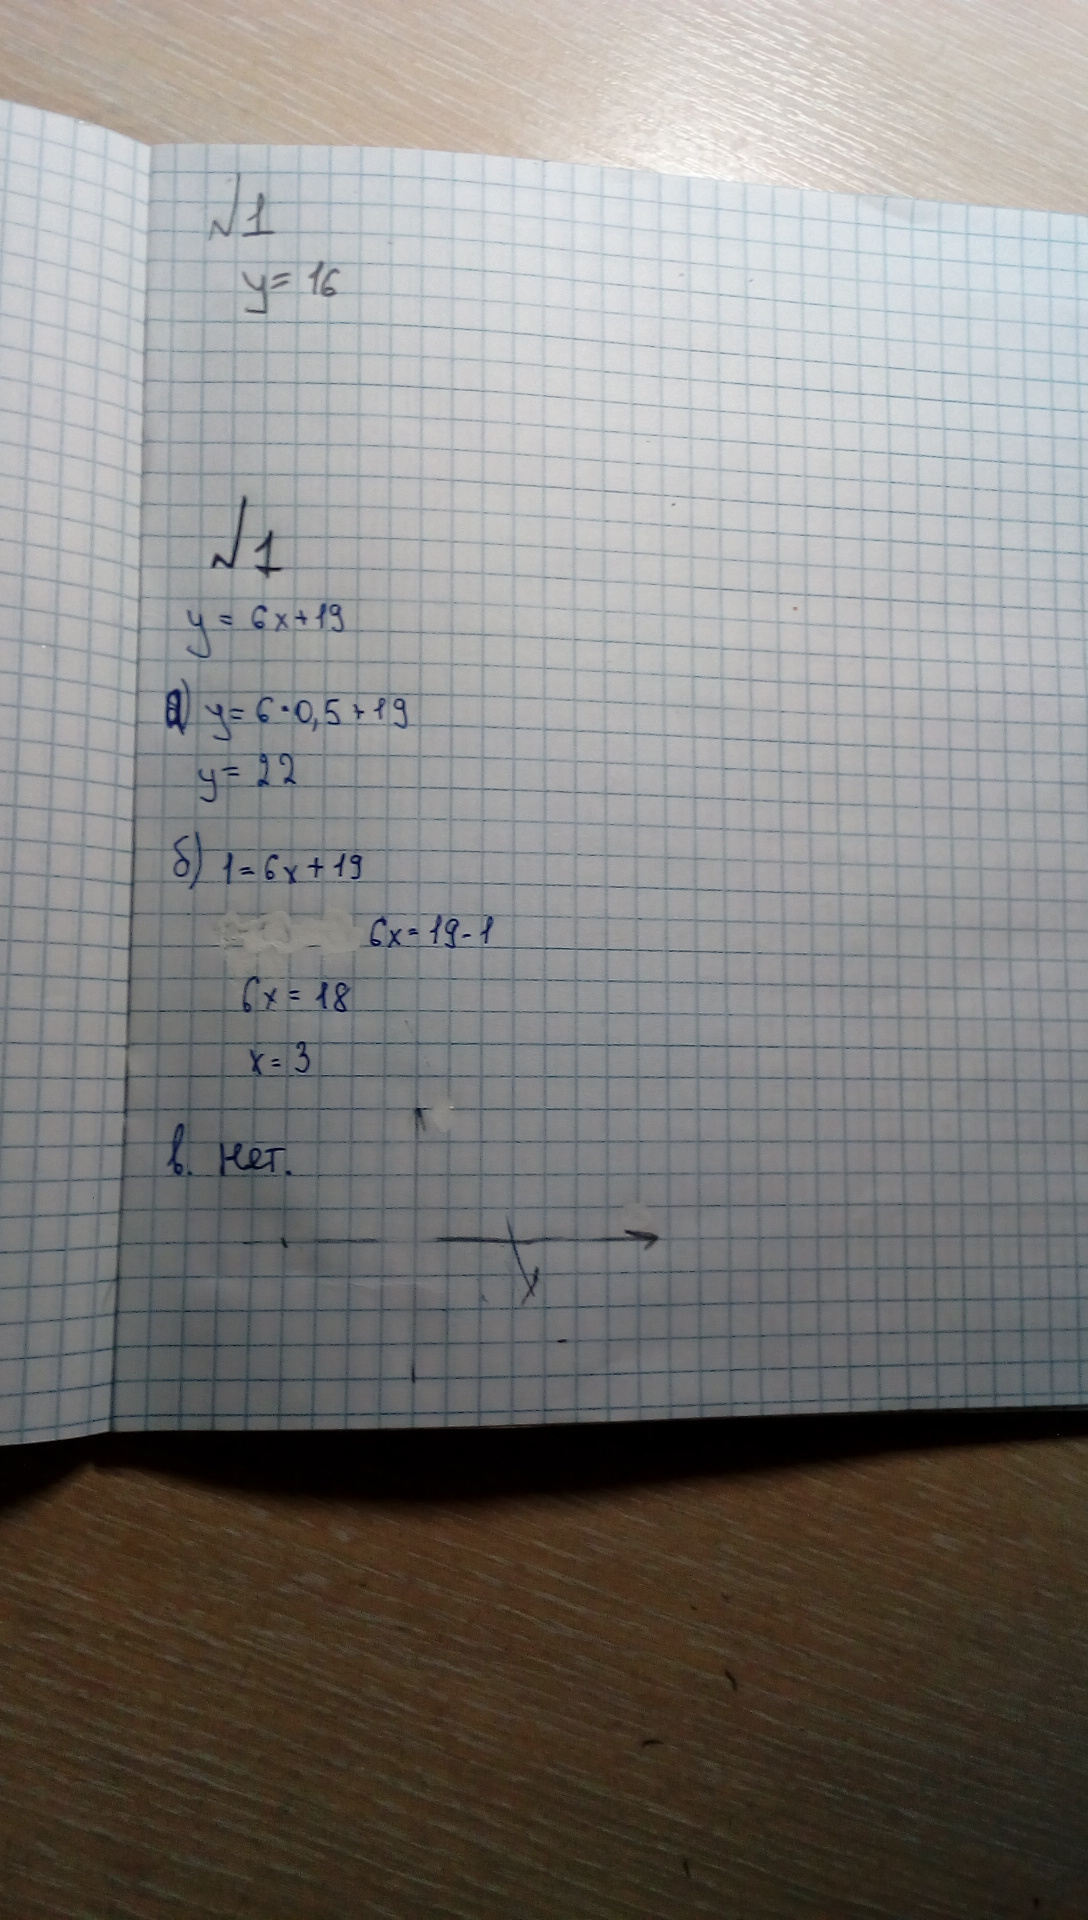 №1
y = 16
№1
y = 6x+19
а) y = 6·0,5+19
y = 22
б) 1=6x+19
6x=19-1
6x = 18
x = 3
в. Нет.